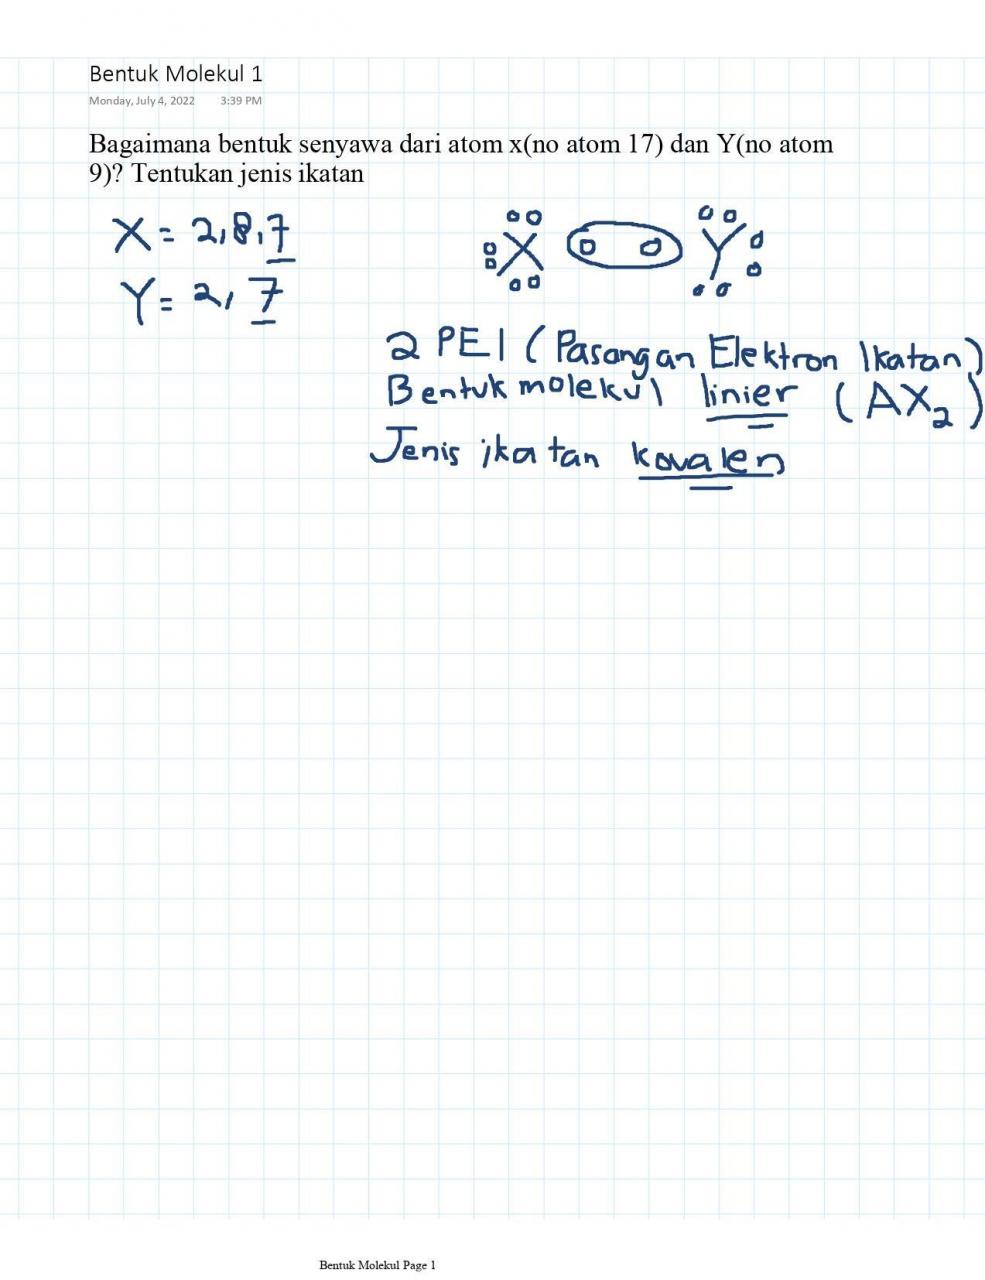 Bentuk Molekul 1
Monday, July 4, 2022 3:39 PM
Bagaimana bentuk senyawa dari atom x(no atom 17) dan Y(no atom
9)? Tentukan jenis ikatan
X = 2,8,7
Y = 2, 7
X Y
2 PEI (Pasangan Elektron Ikatan)
Bentuk molekul linier (AX₂)
Jenis ikatan kovalen
Bentuk Molekul Page 1